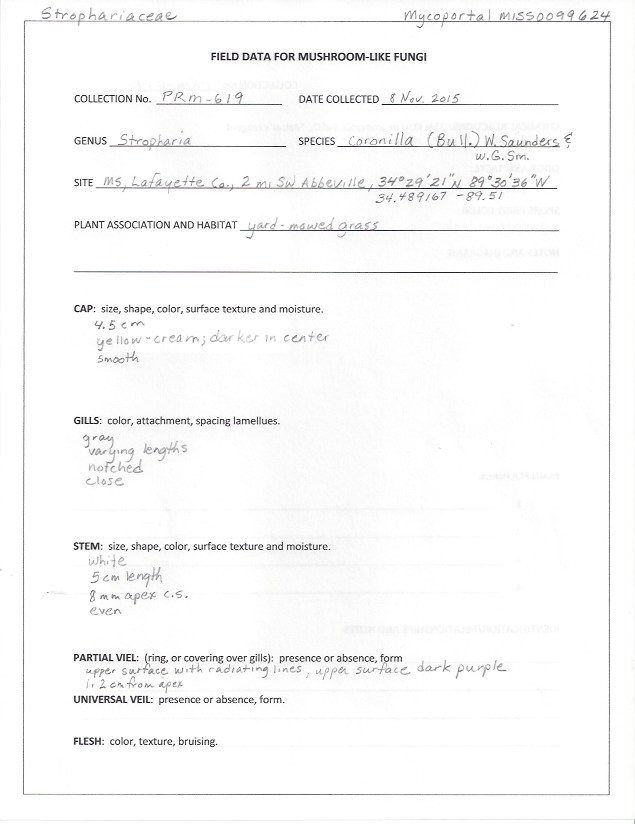 Strophariaceae Mycoportal MISS0099624
FIELD DATA FOR MUSHROOM-LIKE FUNGI
COLLECTION No. PRM-619 DATE COLLECTED 8 Nov. 2015
GENUS Stropharia SPECIES Coronilla (Bull.) W. Saunders &
W.G.Sm.
SITE MS, Lafayette Co., 2 mi SW Abbeville, 34°29'21"N 89°30'36"W
34.489167 -89.51
PLANT ASSOCIATION AND HABITAT yard-mowed grass
CAP: size, shape, color, surface texture and moisture.
4.5 cm
yellow-cream; darker in center
smooth
GILLS: color, attachment, spacing lamellues.
gray
varying lengths
notched
close
STEM: size, shape, color, surface texture and moisture.
white
5 cm length
8 mm apex c.s.
even
PARTIAL VIEL: (ring, or covering over gills): presence or absence, form
upper surface with radiating lines, upper surface dark purple
1.2 cm from apex
UNIVERSAL VEIL: presence or absence, form.
FLESH: color, texture, bruising.